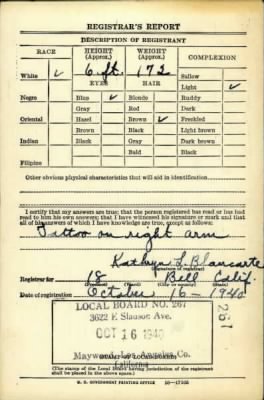 REGISTRAR'S REPORT
DESCRIPTION OF REGISTRANT
RACE HEIGHT (Approx.) WEIGHT (Approx.) COMPLEXION
6 ft. 172
White ✓ EYES HAIR Sallow
Light ✓
Negro Blue ✓ Blonde Ruddy
Gray Red Dark
Oriental Hazel Brown ✓ Freckled
Brown Black Light brown
Indian Black Gray Dark brown
Bald Black
Filipino
Other obvious physical characteristics that will aid in identification
I certify that my answers are true; that the person registered has read or has had
read to him his own answers; that I have witnessed his signature or mark and that
all of his answers of which I have knowledge are true, except as follows:
Tattoo on right arm
Kathryn L. Blancarte
(Signature of registrar)
Registrar for 18 Bell Calif.
(Precinct) (Ward) (City or county) (State)
Date of registration October 16 - 1940
LOCAL BOARD NO. 267
3622 E Slauson Ave.
OCT 16 1940
Maywood, Los Angeles Co.
California
(The stamp of the Local Board having jurisdiction of the registrant
shall be placed in the above space.)
U. S. GOVERNMENT PRINTING OFFICE 16—17105